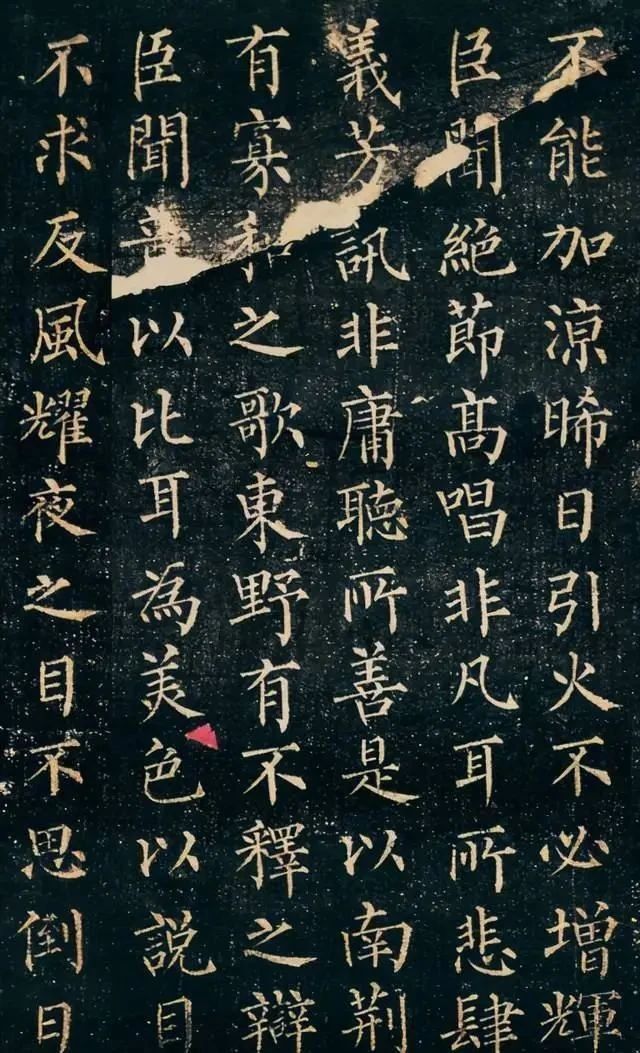 不能加涼晞日引火不必增輝
臣聞絕節髙唱非凡耳所悲肆
義芳訊非庸聽所善是以南荆
有寡和之歌東野有不釋之辯
臣聞音以比耳為美色以説目
不求反風耀夜之目不思倒日